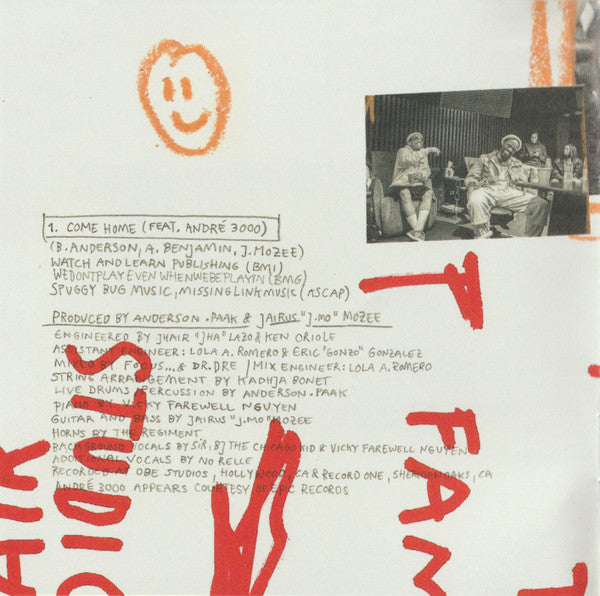 1. COME HOME (FEAT. ANDRÉ 3000)
(B. ANDERSON, A. BENJAMIN, J. MOZEE)
WATCH AND LEARN PUBLISHING (BMI)
WEDONTPLAYEVENWHENWEBEPLAYIN (BMG)
SPUGGY BUG MUSIC, MISSINGLINKMUSIC (ASCAP)
PRODUCED BY ANDERSON .PAAK & JAIRUS "J.MO" MOZEE
ENGINEERED BY JHAIR "JHA" LAZO & KEN ORIOLE
ASSISTANT ENGINEER: LOLA A. ROMERO & ERIC "GONZO" GONZALEZ
MIXED BY FOCUS... & DR. DRE / MIX ENGINEER: LOLA A. ROMERO
STRING ARRANGEMENT BY KADHJA BONET
LIVE DRUMS/PERCUSSION BY ANDERSON .PAAK
PIANO BY VICKY FAREWELL NGUYEN
GUITAR AND BASS BY JAIRUS "J.MO" MOZEE
HORNS BY THE REGIMENT
BACKGROUND VOCALS BY SIR, BJ THE CHICAGO KID & VICKY FAREWELL NGUYEN
ADDITIONAL VOCALS BY NO RELLE
RECORDED AT OBE STUDIOS, HOLLYWOOD, CA & RECORD ONE, SHERMAN OAKS, CA
ANDRÉ 3000 APPEARS COURTESY OF EPIC RECORDS
STUDIO
AIR
T FAM